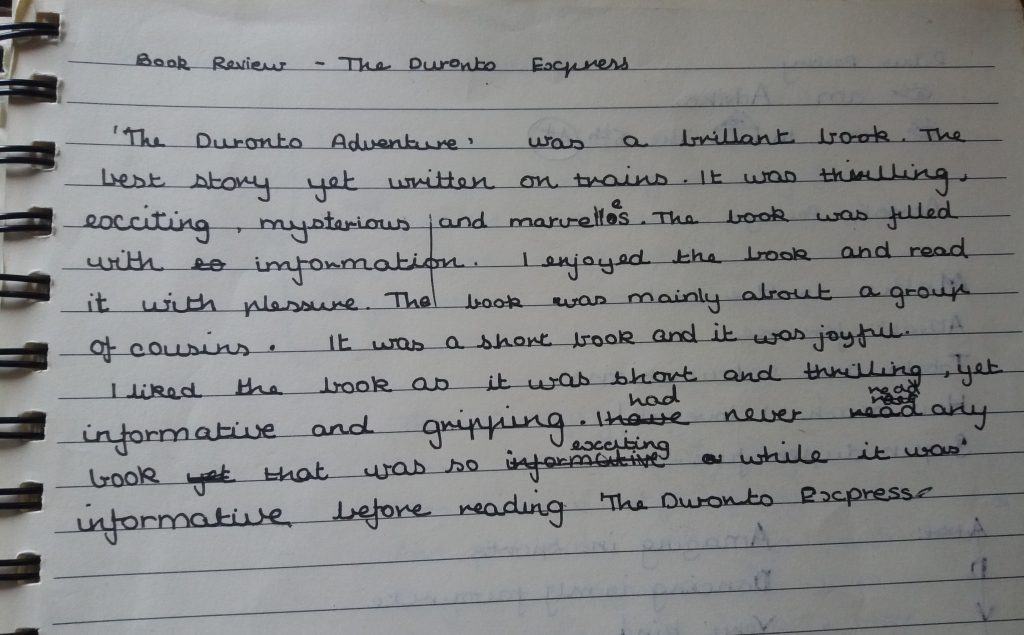 Book Review - The Duronto Express
'The Duronto Adventure' was a brillant book. The
best story yet written on trains. It was thrilling,
exciting, mysterious and marvelloes. The book was filled
with imformation. I enjoyed the book and read
it with plessure. The book was mainly about a group
of cousins. It was a short book and it was joyful.
I liked the book as it was short and thrilling, yet
informative and gripping. I had never read any
book that was so exciting while it was
informative before reading 'The Duronto Express